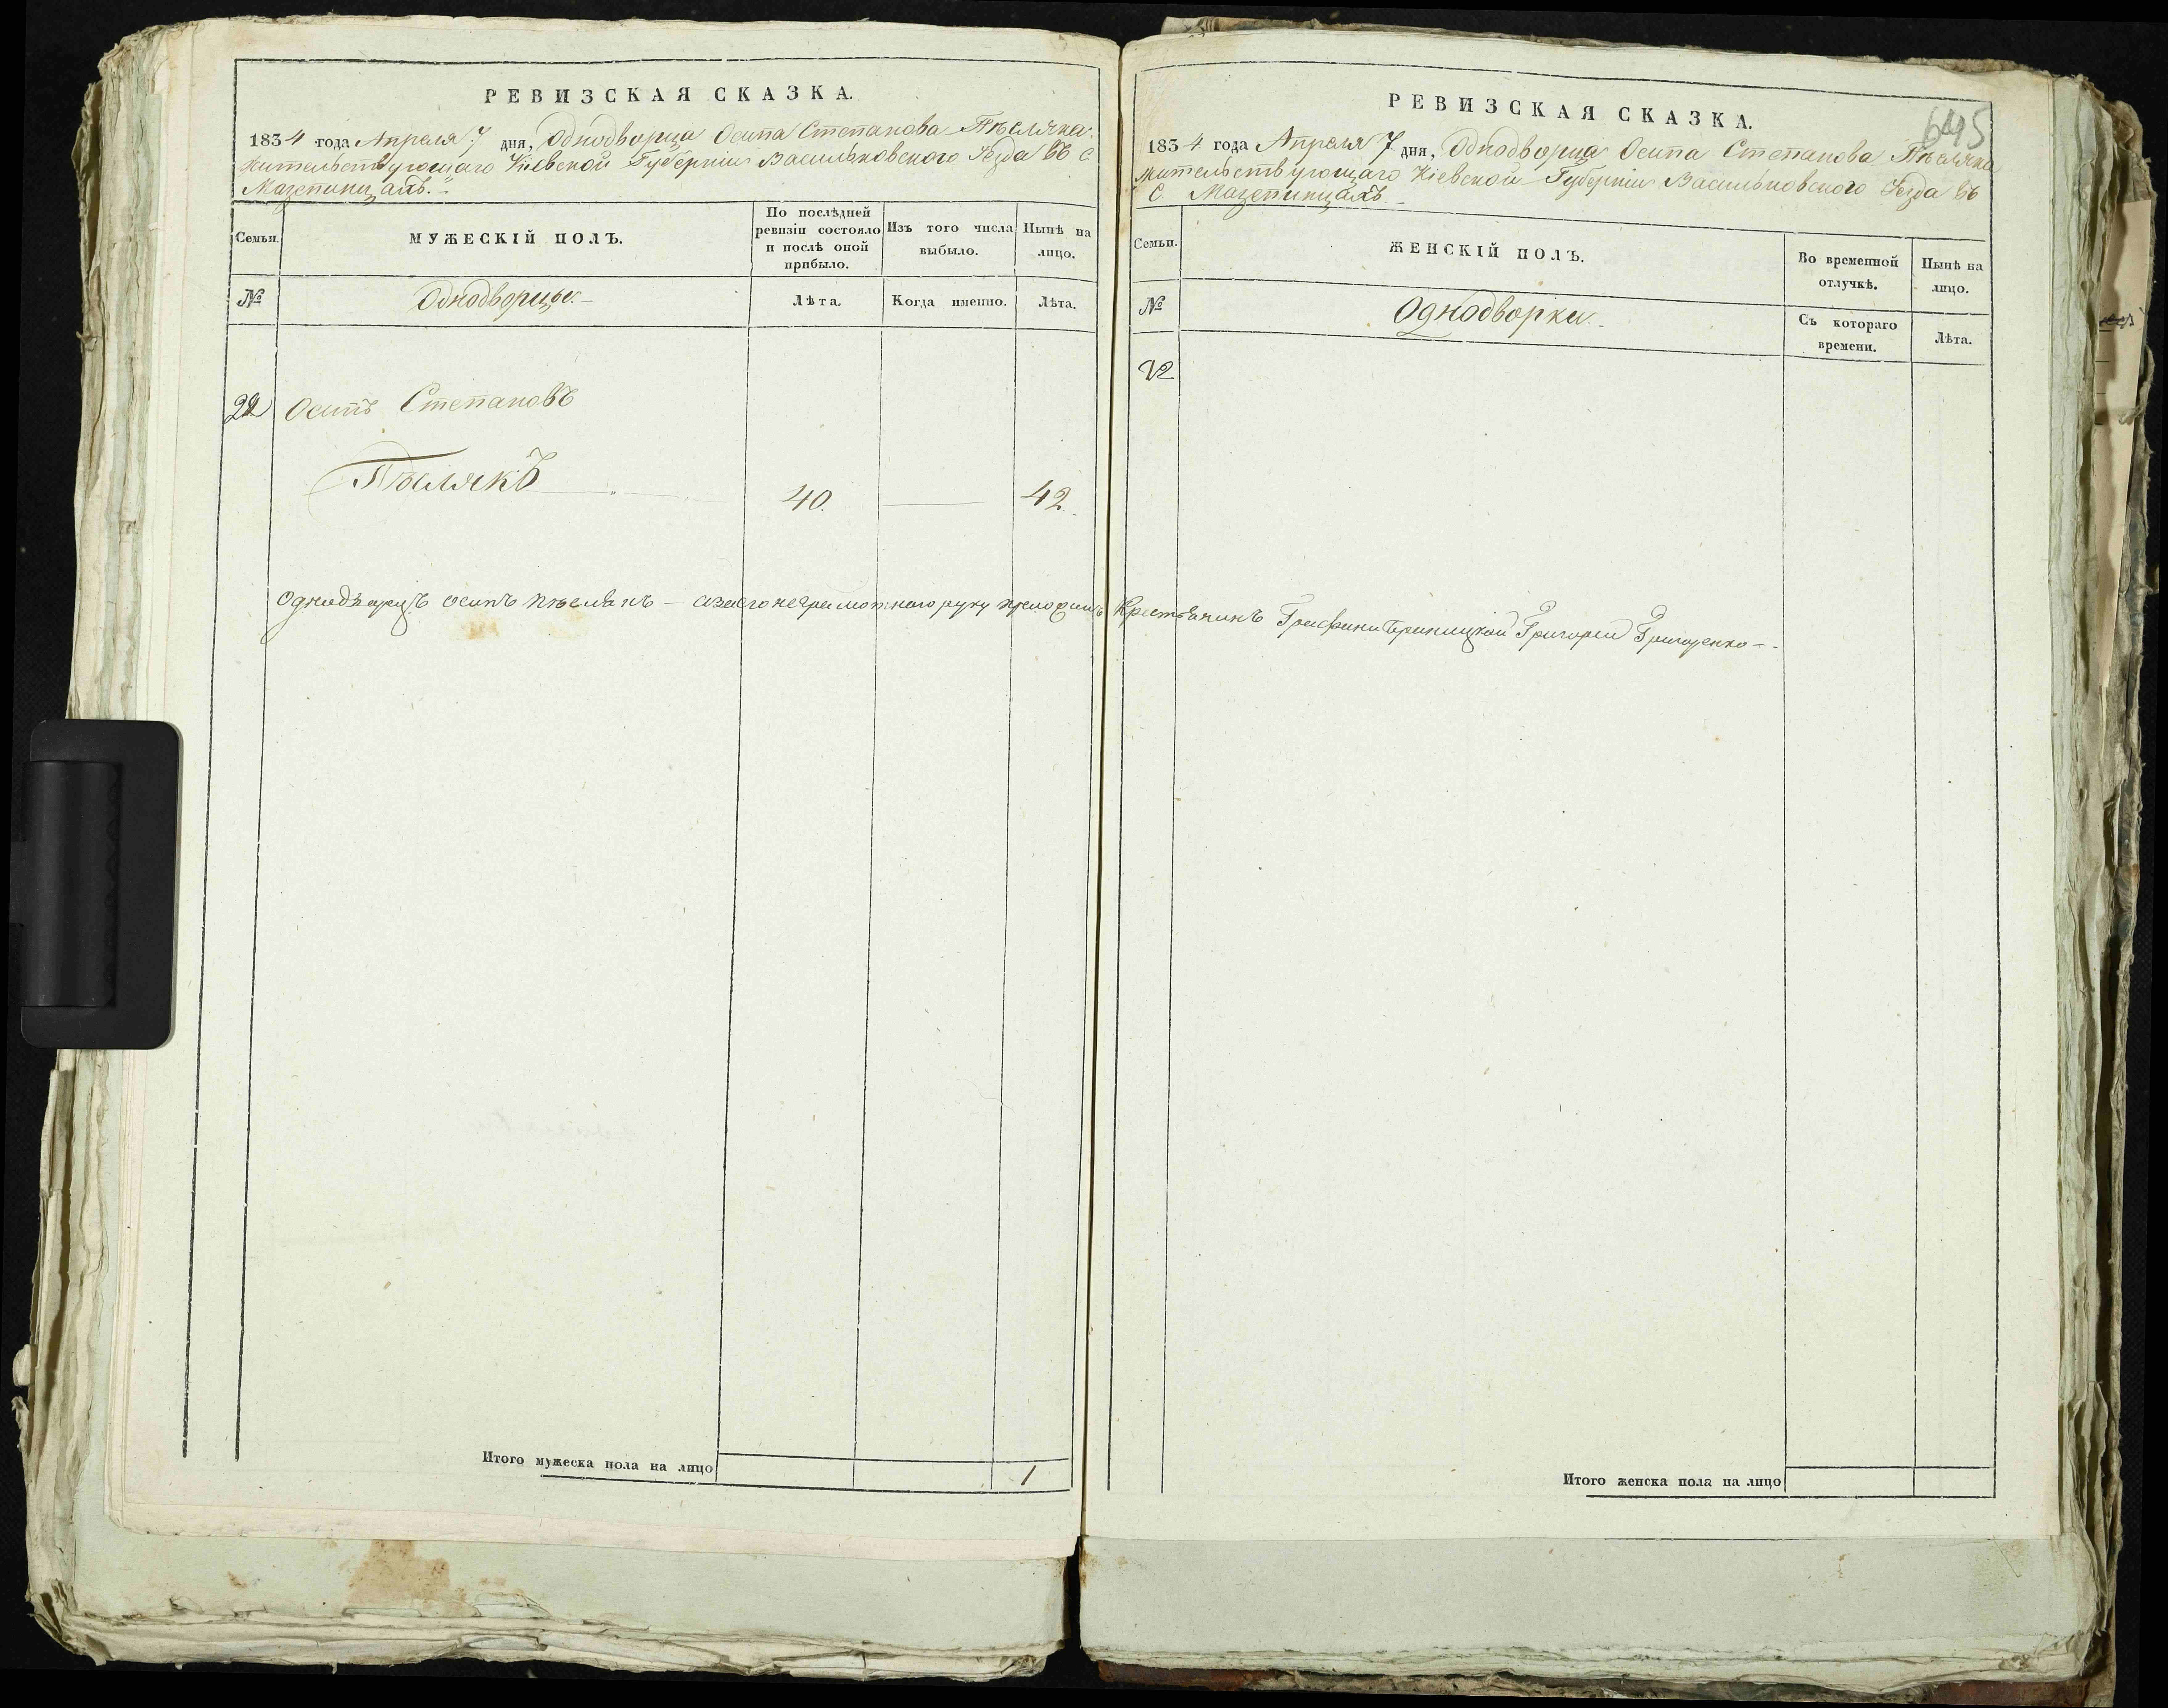 РЕВИЗСКАЯ СКАЗКА.
1834 года Апреля 7 дня, Однодворца Осипа Степанова Пѣсляка
жительствующаго Кіевской Губерніи Васильковского Уезда въ С.
Мазепинцахъ.
Семьи.
МУЖЕСКІЙ ПОЛЪ.
По послѣдней ревизіи состояло и послѣ оной прибыло.
Изъ того числа выбыло.
Нынѣ на лицо.
№
Однодворцы
Лѣта
Когда именно.
Лѣта.
22 Осипъ Степановъ
Пѣслякъ 40. — 42.
Однодворецъ Осипъ Пѣслякъ — а за его неграмотного руку приложилъ Крестьянинъ Графини Браницкой Григорий Григоренко —
Итого мужеска пола на лицо 1
645
РЕВИЗСКАЯ СКАЗКА.
1834 года Апреля 7 дня, Однодворца Осипа Степанова Пѣсляка
жительствующаго Кіевской Губерніи Васильковского Уезда въ
С. Мазепинцахъ.
Семьи.
ЖЕНСКІЙ ПОЛЪ.
Во временной отлучкѣ.
Нынѣ на лицо.
№
Однодворки
Съ котораго времени.
Лѣта.
Итого женска пола на лицо